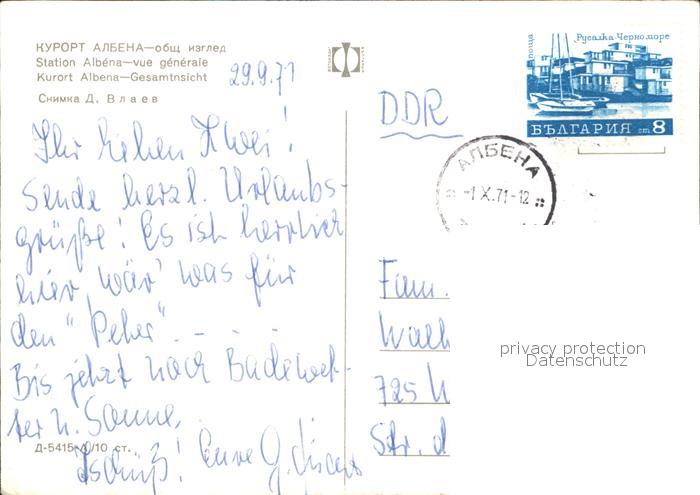 КУРОРТ АЛБЕНА—общ изглед
Station Albéna—vue générale
Kurort Albena—Gesamtnsicht
Снимка Д. Влаев
29.9.71
Ihr lieben Zwei!
Sende herzl. Urlaubs-
grüße! Es ist herrlich
hier, wär' was für
den "Peter". - - -
Bis jetzt noch Badewet-
ter u. Sonne.
Д-5415-А/10 ст.
Tschüß! Eure G.
поща
Русалка Черно море
БЪЛГАРИЯ ст 8
АЛБЕНА
-1 X.71-12
DDR
Fam.
725
Str. d
privacy protection
Datenschutz